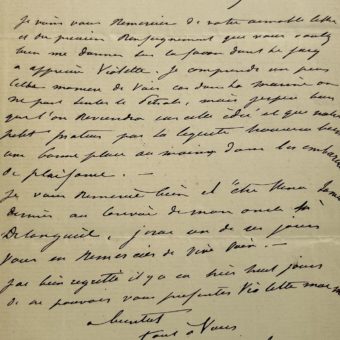 Je viens vous remercier de votre aimable lettre
et du précieux renseignement que vous voulez
bien me donner sur la façon dont le jury
a apprécié Violette. Je comprends un peu
cette manière de voir car dans la marine on
ne peut
que l'on reviendra sur cette idée et que notre
petit par la légèreté trouvera bien
une bonne place au moins dans les embarc
de plaisance. —
Je vous remercie bien d'être venu
dernier au convoi de mon oncle
j'irai un de ces jours
vous en remercier de vive voix. —
J'ai bien regretté il y a eu hier huit jours
de ne pouvoir vous présenter Violette
à bientôt
tout à vous